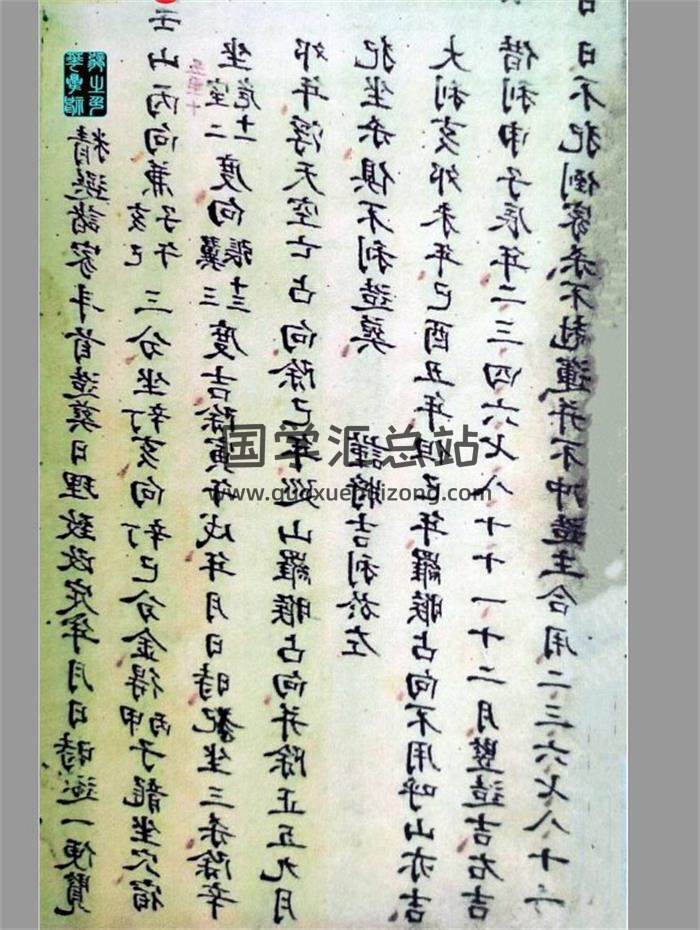 精選諸家斗首造葬日理致改定年月日時逐一便覽
壬山丙向兼子午亥巳三分坐辛丁亥向辛丁巳分金得丙甲子龍坐穴宿
坐危十一室二度向張十三翼三度吉除寅午戌年月日時犯坐三杀除辛
卯年浮天空亡占向除己年巡山羅睺占向并除正五九月
犯坐杀俱不利造葬 謹將吉利於左
大利亥卯未年巳酉丑年但己年羅睺占向不用呼山亦吉
借利申子辰年二三四六七八十十一十二月豎造吉右吉
日不犯倒家杀不尅運并不冲造主合用二三六七八十
国学汇总站
www.guoxuehuizong.com